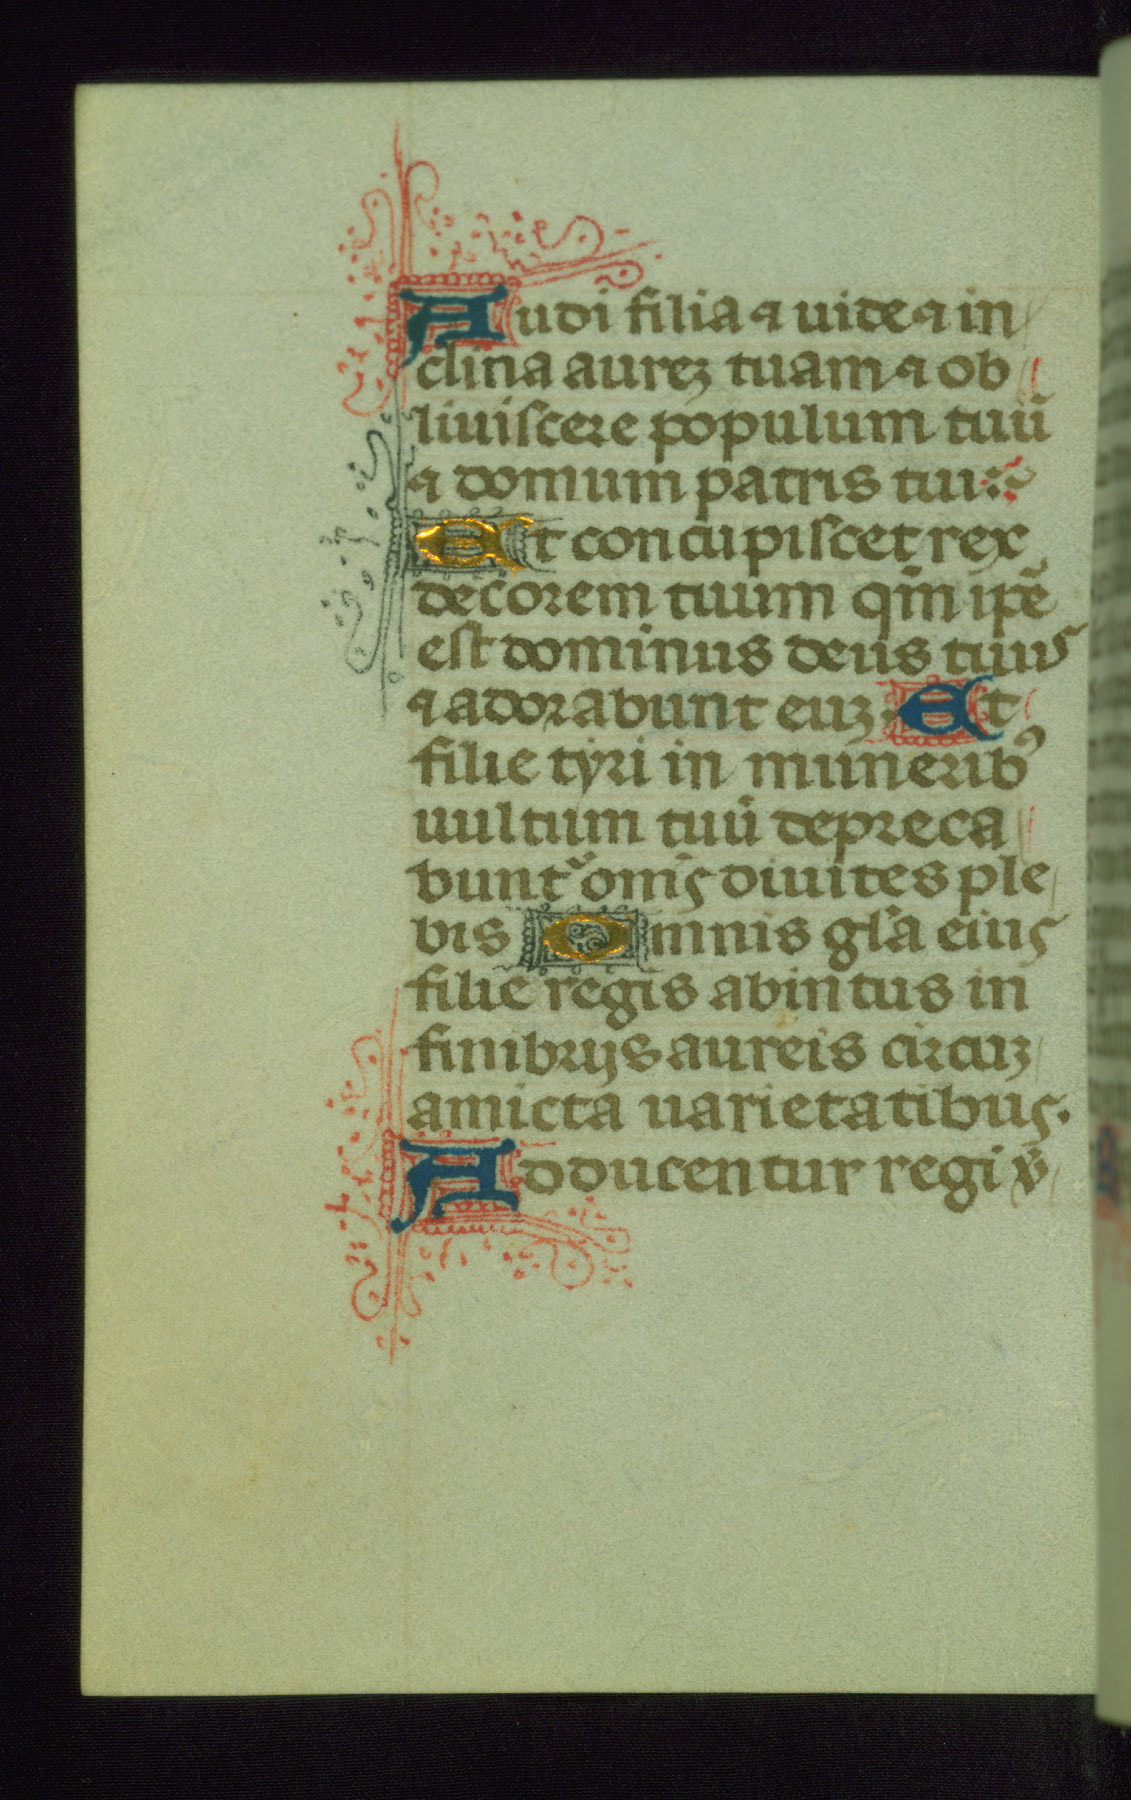 Audi filia ⁊ uide ⁊ in
clina aureꝫ tuam ⁊ ob
liuiscere populum tuū
⁊ domum patris tui:
Et concupiscet rex
decorem tuum qm̄ ip̄e
est dominus deus tuus
⁊ adorabunt euꝫ: Et
filie tyri in munerib᾽
uultum tuū depreca
bunt᾽ om̄s diuites ple
bis Omnis gl̄a eius
filie regis abintus in
fimbrijs aureis circuꝫ
amicta uarietatibus.
Adducentur regi v̄